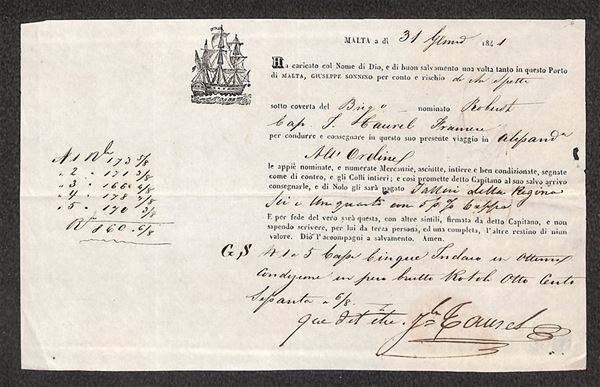 MALTA a di 31 Genn° 1841
Ha caricato col Nome di Dio, e di buon salvamento una volta tanto in questo Porto
di MALTA, GIUSEPPE SONNINO per conto e rischio di chi spetta
sotto coverta del Brig° nominato Robust
Cap J. Taurel Francese
per condurre e consegnare in questo suo presente viaggio in Alessand^a
All'Ordine
le appiè nominate, e numerate Mercanzie, asciutte, intiere e ben condizionate, segnate
come di contro, e gli Colli intieri; e così promette detto Capitano al suo salvo arrivo
consegnarle, e di Nolo gli sarà pagato Talleri della Regina
Sei e Un quarto con 5 p % Cappa
E per fede del vero sarà questa, con altre simili, firmata da detto Capitano, e non
sapendo scrivere, per lui da terza persona, ed una completa, l'altre restino di niun
valore. Dio l'accompagni a salvamento. Amen.
N 1 R 173
" 2 " 171
" 3 " 166
" 4 " 178
" 5 " 170
R 860. 6/8
G,S N 1 a 5 Casse Cinque Indaco in Ottima
Condizione in peso brutto Rotoli Otto Cento
Sesanta e 6/8
que dit être. J^h Taurel